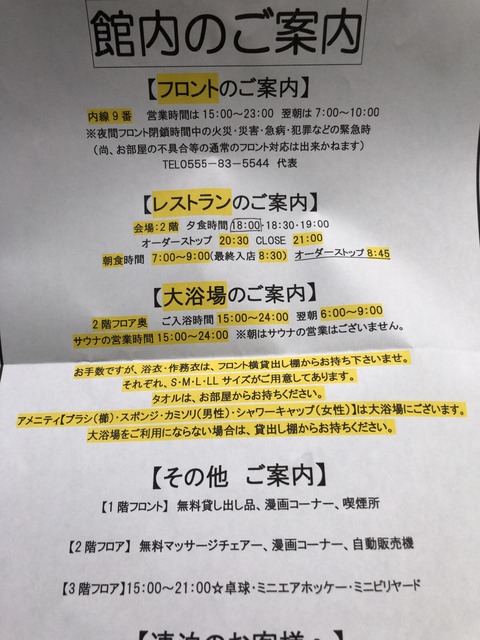 館内のご案内
【フロントのご案内】
内線9番 営業時間は 15:00~23:00 翌朝は 7:00~10:00
※夜間フロント閉鎖時間中の火災・災害・急病・犯罪などの緊急時
(尚、お部屋の不具合等の通常のフロント対応は出来かねます)
TEL0555-83-5544 代表
【レストランのご案内】
会場:2階 夕食時間 18:00・18:30・19:00
オーダーストップ 20:30 CLOSE 21:00
朝食時間 7:00~9:00(最終入店 8:30) オーダーストップ 8:45
【大浴場のご案内】
2階フロア奥 ご入浴時間 15:00~24:00 翌朝 6:00~9:00
サウナの営業時間 15:00~24:00 ※朝はサウナの営業はございません。
お手数ですが、浴衣・作務衣は、フロント横貸出し棚からお持ち下さいませ。
それぞれ、S・M・L・LL サイズがご用意してあります。
タオルは、お部屋からお持ちください。
アメニティ【ブラシ(櫛)・スポンジ・カミソリ(男性)・シャワーキャップ(女性)】は大浴場にございます。
大浴場をご利用にならない場合は、貸出し棚からお持ちください。
【その他 ご案内】
【1階フロント】 無料貸し出し品、漫画コーナー、喫煙所
【2階フロア】 無料マッサージチェアー、漫画コーナー、自動販売機
【3階フロア】15:00~21:00☆卓球・ミニエアホッケー・ミニビリヤード
【連泊のお客様へ】